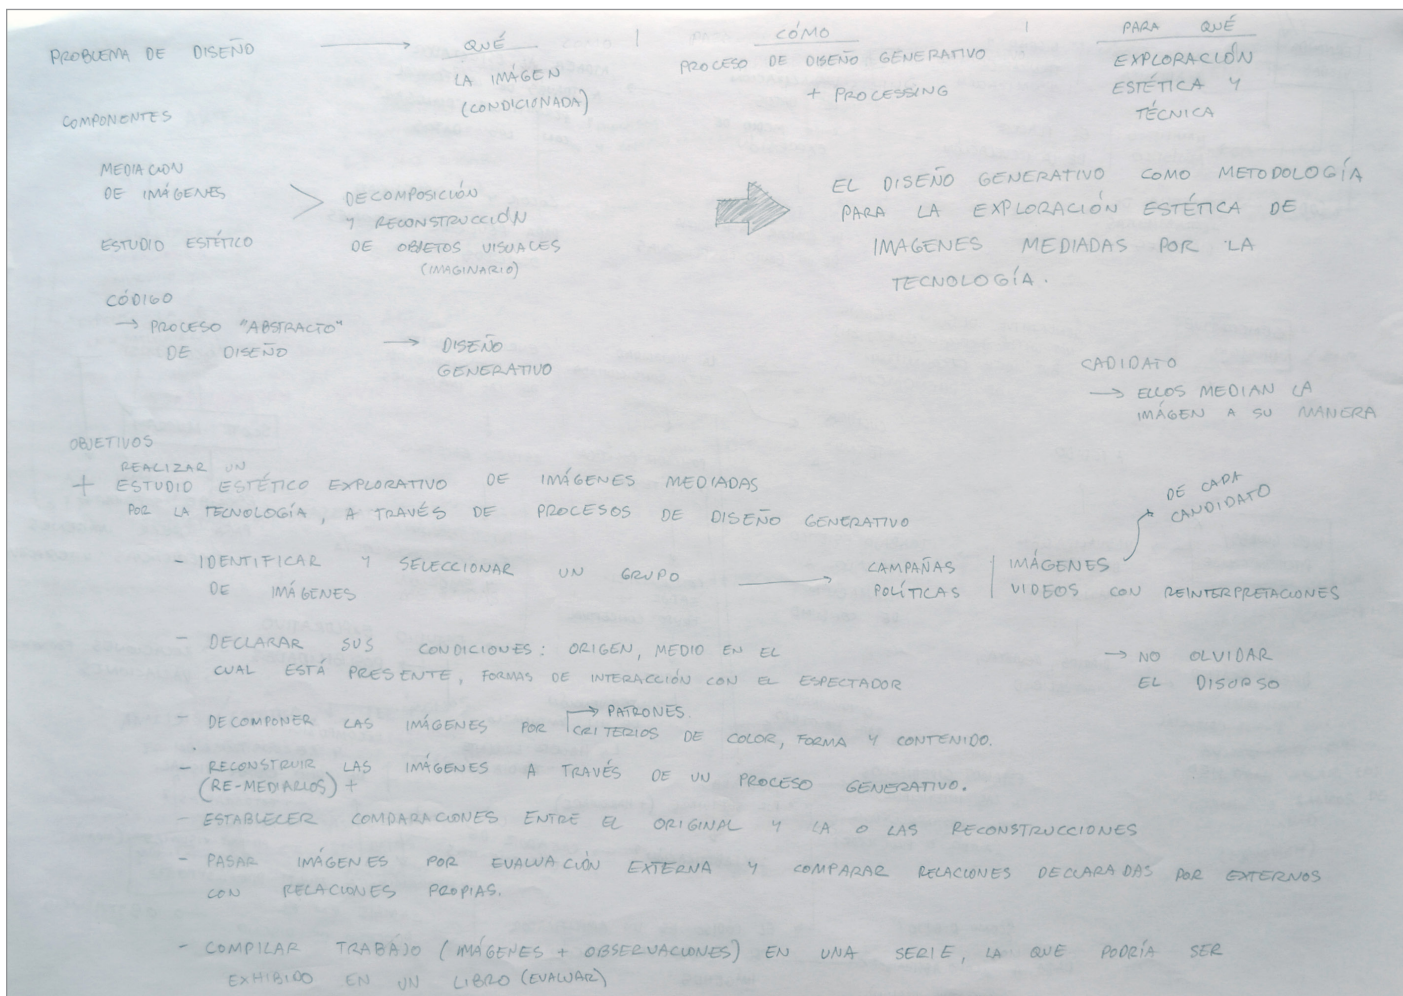 PROBLEMA DE DISEÑO → QUÉ | CÓMO | PARA QUÉ
LA IMÁGEN
(CONDICIONADA)
PROCESO DE DISEÑO GENERATIVO
+ PROCESSING
EXPLORACIÓN
ESTÉTICA Y
TÉCNICA
COMPONENTES
MEDIACIÓN
DE IMÁGENES
ESTUDIO ESTÉTICO
DECOMPOSICIÓN
Y RECONSTRUCCIÓN
DE OBJETOS VISUALES
(IMAGINARIO)
EL DISEÑO GENERATIVO COMO METODOLOGÍA
PARA LA EXPLORACIÓN ESTÉTICA DE
IMAGENES MEDIADAS POR LA
TECNOLOGÍA.
CÓDIGO
→ PROCESO "ABSTRACTO"
DE DISEÑO
→ DISEÑO
GENERATIVO
CADIDATO
→ ELLOS MEDIAN LA
IMÁGEN A SU MANERA
OBJETIVOS
REALIZAR UN
+ ESTUDIO ESTÉTICO EXPLORATIVO DE IMÁGENES MEDIADAS
POR LA TECNOLOGÍA, A TRAVÉS DE PROCESOS DE DISEÑO GENERATIVO
DE CADA
CANDIDATO
- IDENTIFICAR Y SELECCIONAR UN GRUPO
DE IMÁGENES
→ CAMPAÑAS
POLÍTICAS
IMÁGENES
VIDEOS CON REINTERPRETACIONES
- DECLARAR SUS CONDICIONES: ORIGEN, MEDIO EN EL
CUAL ESTÁ PRESENTE, FORMAS DE INTERACCIÓN CON EL ESPECTADOR
→ NO OLVIDAR
EL DISURSO
→ PATRONES
- DECOMPONER LAS IMÁGENES POR CRITERIOS DE COLOR, FORMA Y CONTENIDO.
- RECONSTRUIR LAS IMÁGENES A TRAVÉS DE UN PROCESO GENERATIVO.
(RE-MEDIARLOS) +
- ESTABLECER COMPARACIONES ENTRE EL ORIGINAL Y LA O LAS RECONSTRUCCIONES
- PASAR IMÁGENES POR EVALUACIÓN EXTERNA Y COMPARAR RELACIONES DECLARADAS POR EXTERNOS
CON RELACIONES PROPIAS.
- COMPILAR TRABAJO (IMÁGENES + OBSERVACIONES) EN UNA SERIE, LA QUE PODRÍA SER
EXHIBIDO EN UN LIBRO (EVALUAR)